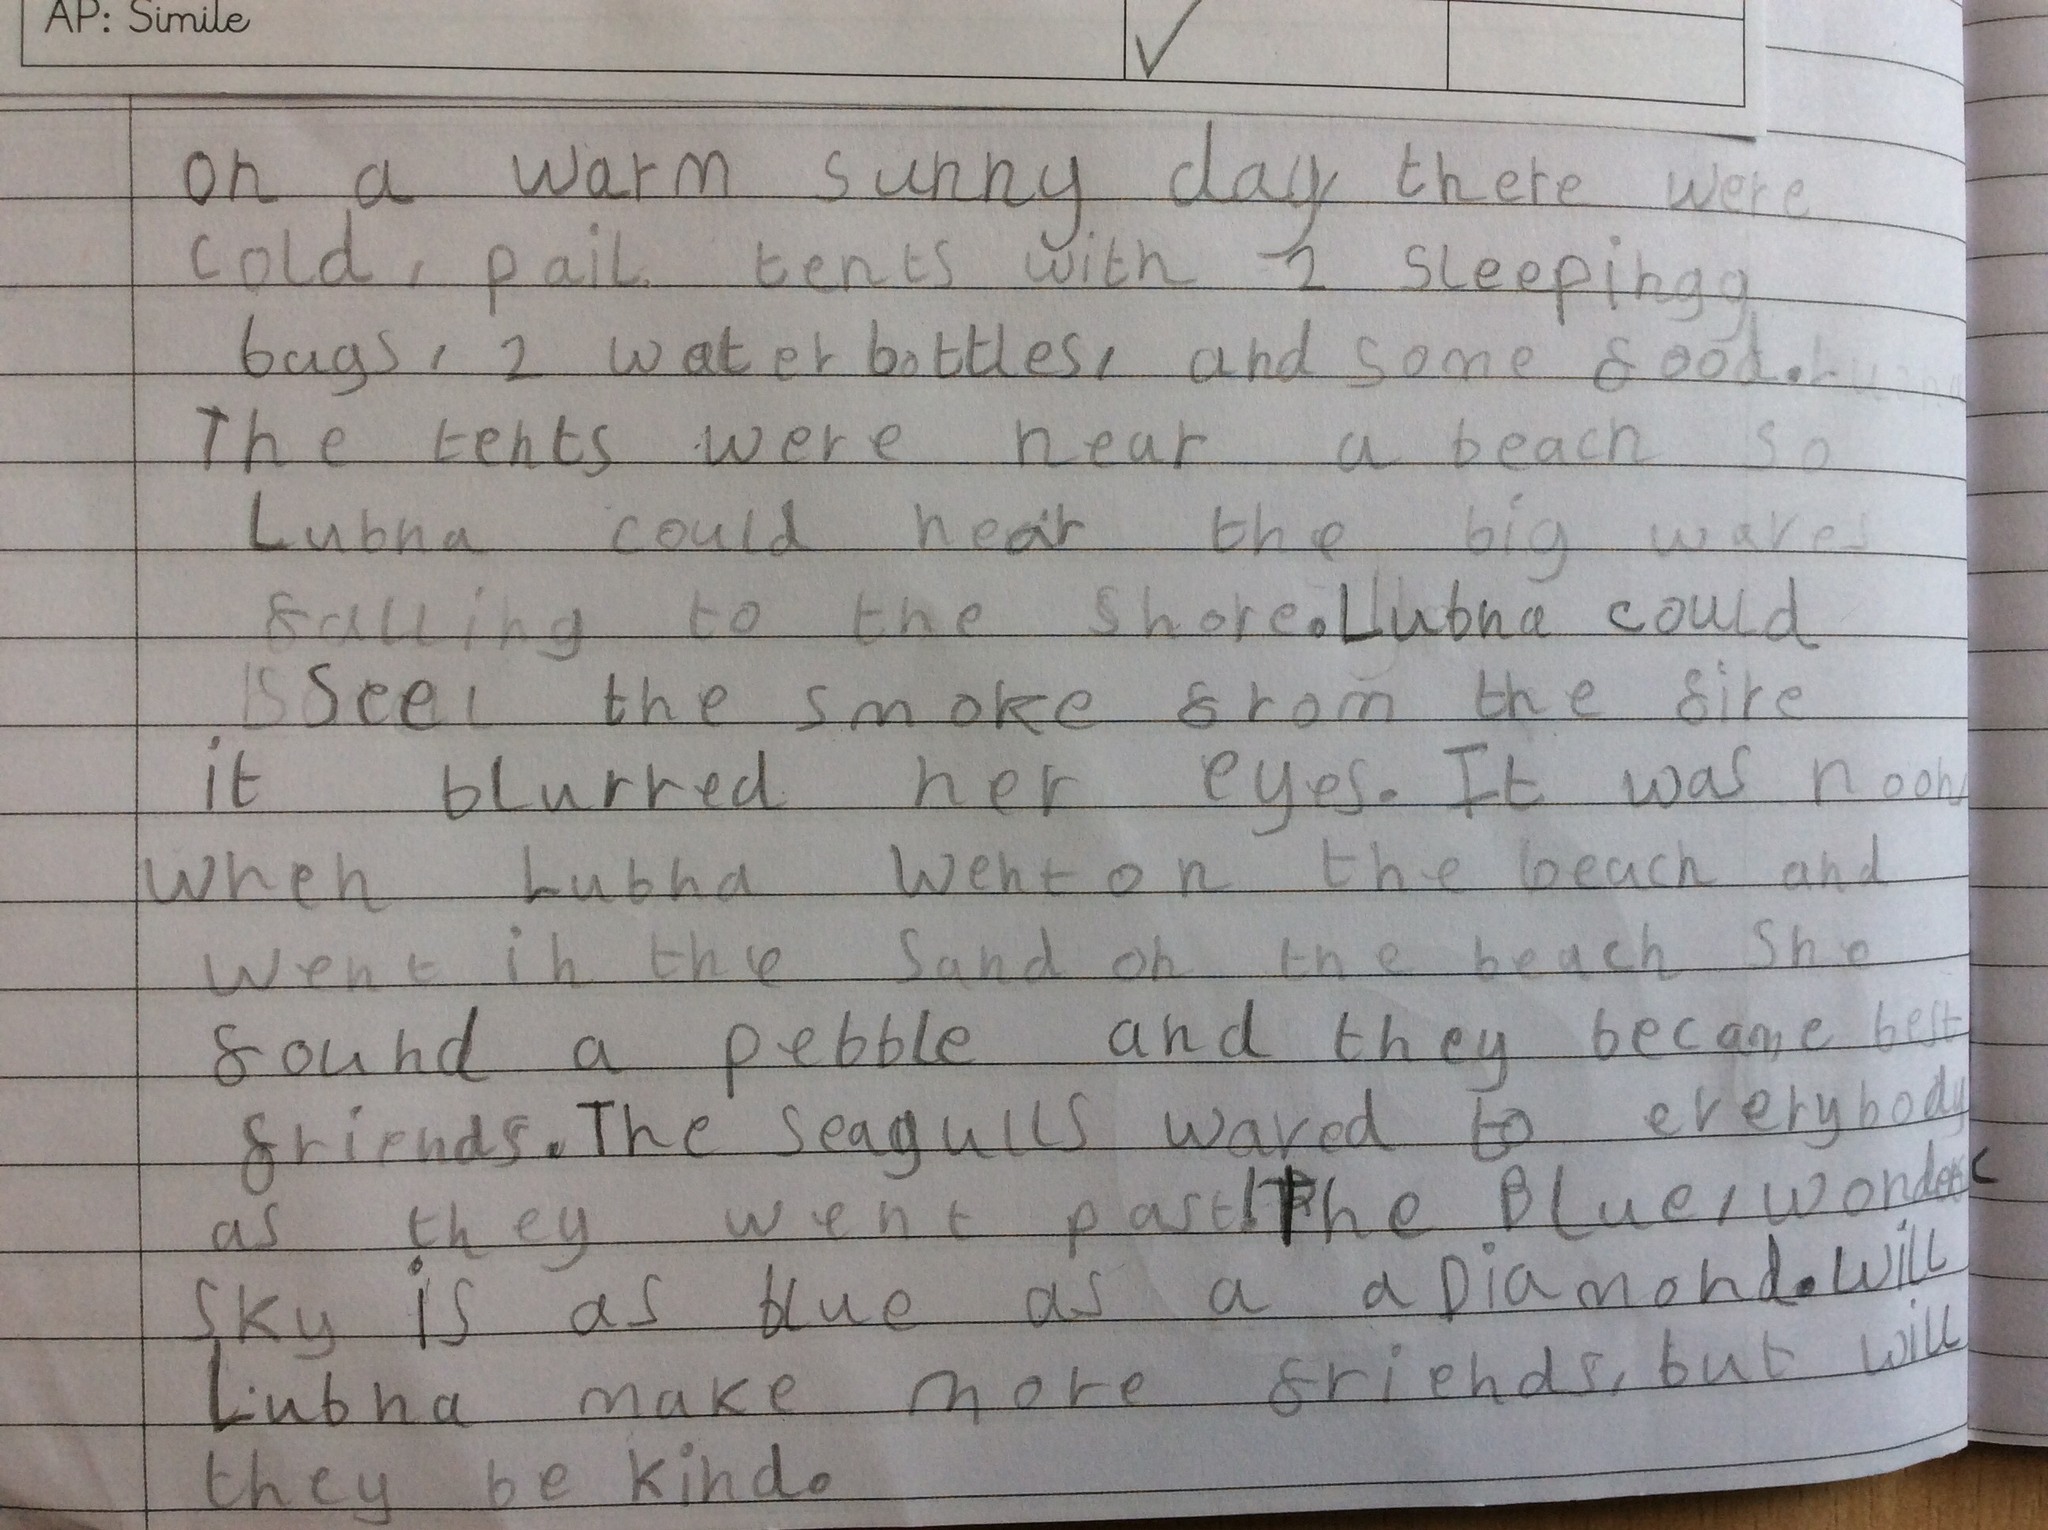 AP: Simile
on a warm sunny day there were
cold, pail tents with 2 sleepingg
bags, 2 water bottles, and some food.
The tents were near a beach so
Lubna could hear the big waves
falling to the shore. Lubna could
see, the smoke from the fire
it blurred her eyes. It was noon
when Lubna went on the beach and
went in the sand on the beach she
found a pebble and they became best
friends. The seagulls waved to everybody
as they went past! The Blue, wonder
sky is as blue as a a Diamond. Will
Lubna make more friends, but will
they be kind.